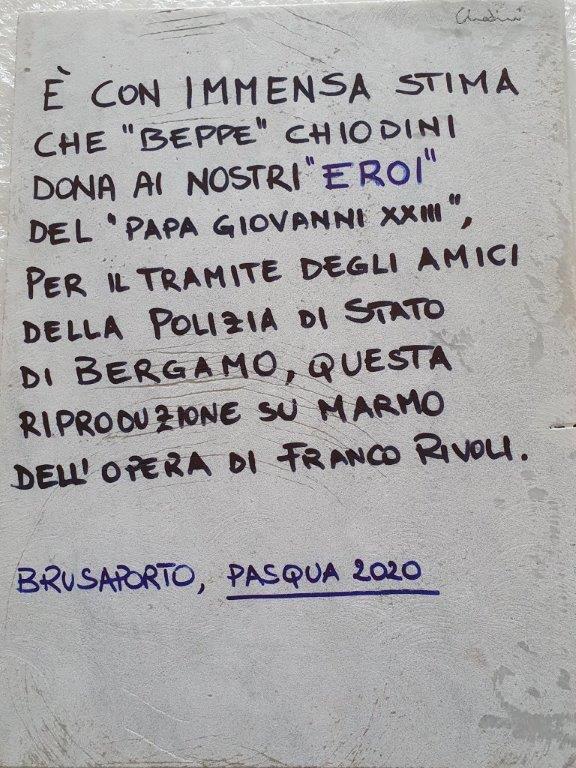 Chiodini
È CON IMMENSA STIMA
CHE "BEPPE" CHIODINI
DONA AI NOSTRI "EROI"
DEL "PAPA GIOVANNI XXIII",
PER IL TRAMITE DEGLI AMICI
DELLA POLIZIA DI STATO
DI BERGAMO, QUESTA
RIPRODUZIONE SU MARMO
DELL'OPERA DI FRANCO RIVOLI.
BRUSAPORTO, PASQUA 2020